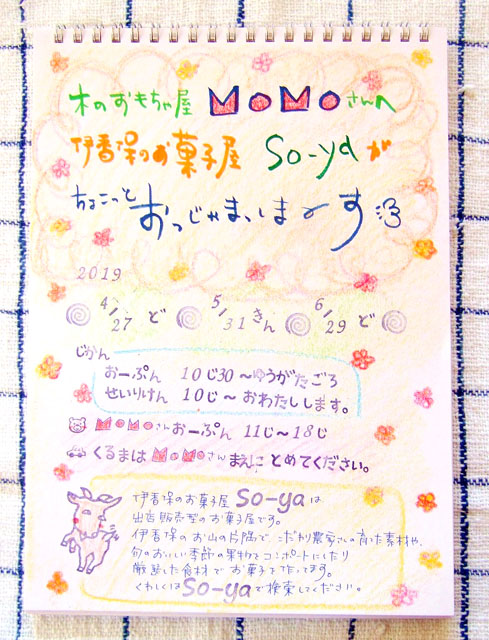 木のおもちゃ屋 MOMOさんへ
伊香保のお菓子屋 so-yaが
ちょこっと おっじゃまっしま〜す
2019
4/27 ど 5/31 きん 6/29 ど
じかん
おーぷん 10じ30〜ゆうがたごろ
せいりけん 10じ〜おわたしします。
MOMOさんおーぷん 11じ〜18じ
くるまはMOMOさんまえにとめてください。
伊香保のお菓子屋 so-yaは
出店販売型のお菓子屋です。
伊香保のお山の片隅で こだわり農家さんの育てた素材や、
旬のおいしい季節の果物をコンポートにしたり
厳選した食材でお菓子を作ってます。
くわしくはso-yaで検索してください。